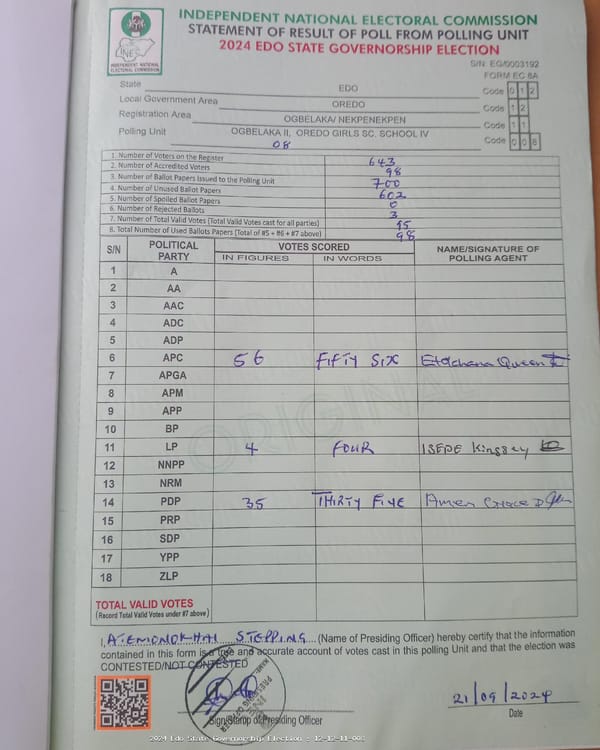 INDEPENDENT NATIONAL ELECTORAL COMMISSION
STATEMENT OF RESULT OF POLL FROM POLLING UNIT
2024 EDO STATE GOVERNORSHIP ELECTION
INEC
INDEPENDENT NATIONAL ELECTORAL COMMISSION
S/N: EG/0003192
FORM EC 8A
State EDO Code 0 1 2
Local Government Area OREDO Code 1 2
Registration Area OGBELAKA/ NEKPENEKPEN Code 1 1
Polling Unit OGBELAKA II, OREDO GIRLS SC. SCHOOL IV Code 0 0 8
08
1. Number of Voters on the Register 643
2. Number of Accredited Voters 98
3. Number of Ballot Papers Issued to the Polling Unit 700
4. Number of Unused Ballot Papers 602
5. Number of Spoiled Ballot Papers 0
6. Number of Rejected Ballots 3
7. Number of Total Valid Votes (Total Valid Votes cast for all parties) 95
8. Total Number of Used Ballots Papers (Total of #5 + #6 + #7 above) 98
S/N POLITICAL PARTY VOTES SCORED NAME/SIGNATURE OF POLLING AGENT
IN FIGURES IN WORDS
1 A
2 AA
3 AAC
4 ADC
5 ADP
6 APC 56 FIFTY SIX Queen
7 APGA
8 APM
9 APP
10 BP
11 LP 4 FOUR ISEDE
12 NNPP
13 NRM
14 PDP 35 THIRTY FIVE Amen
15 PRP
16 SDP
17 YPP
18 ZLP
ORIGINAL
TOTAL VALID VOTES
(Record Total Valid Votes under #7 above)
I, STEPPING (Name of Presiding Officer) hereby certify that the information
contained in this form is a true and accurate account of votes cast in this polling Unit and that the election was
CONTESTED/NOT CONTESTED
21/09/2024
Sign/Stamp of Presiding Officer Date
2024 Edo State Governorship Election : 12-12-11-008